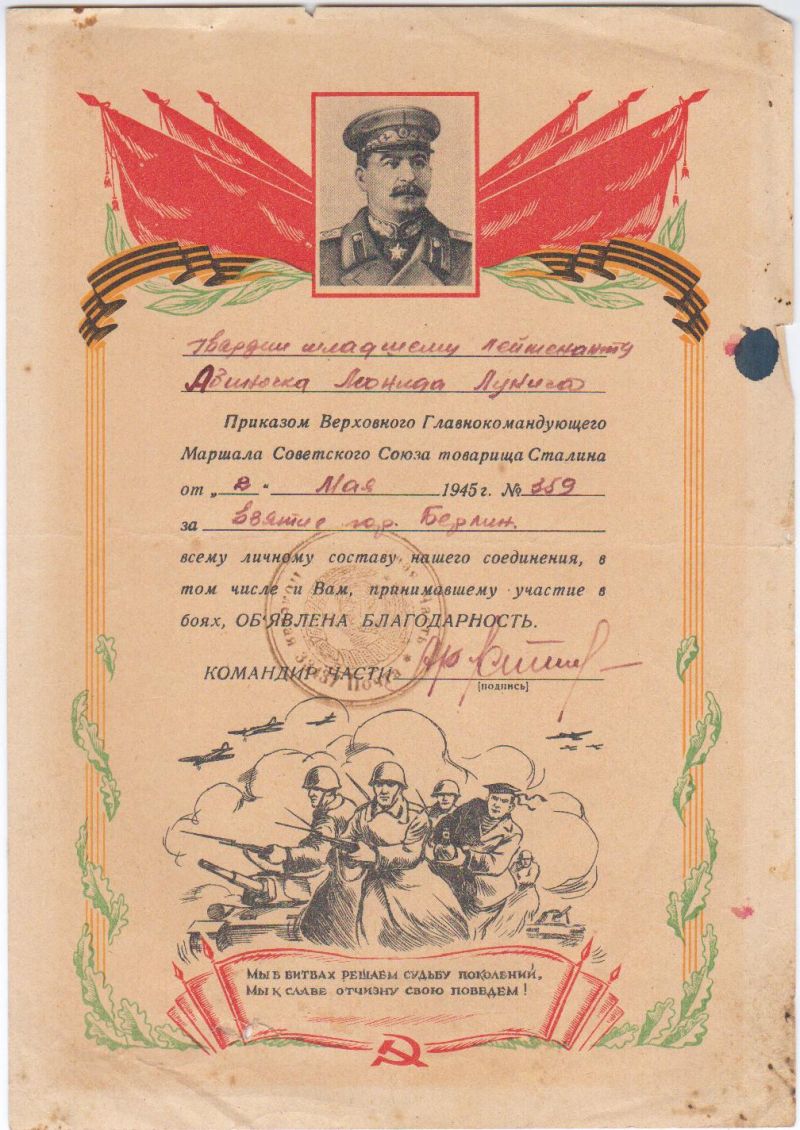 гвардии младшему лейтенанту
Леонида
Приказом Верховного Главнокомандующего
Маршала Советского Союза товарища Сталина
от „2“ Мая 1945 г. № 359
за взятие гор. Берлин.
всему личному составу нашего соединения, в
том числе и Вам, принимавшему участие в
боях, ОБ'ЯВЛЕНА БЛАГОДАРНОСТЬ.
КОМАНДИР ЧАСТИ
[подпись]
МЫ В БИТВАХ РЕШАЕМ СУДЬБУ ПОКОЛЕНИЙ,
МЫ К СЛАВЕ ОТЧИЗНУ СВОЮ ПОВЕДЕМ!